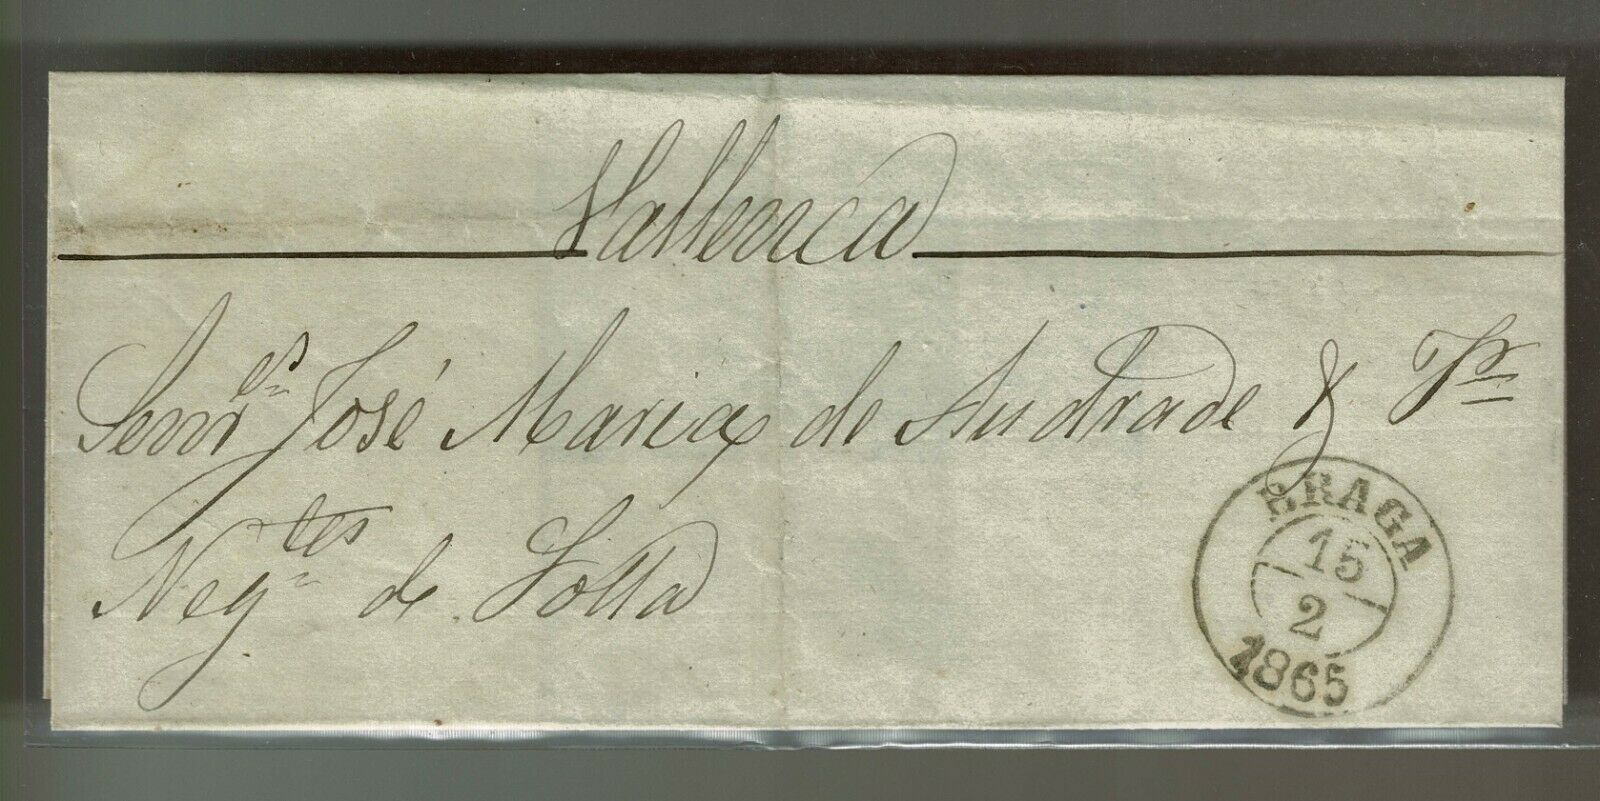 Senr.es José Maria de Andrade & Fos
Neg.tes de
BRAGA
15
2
1865